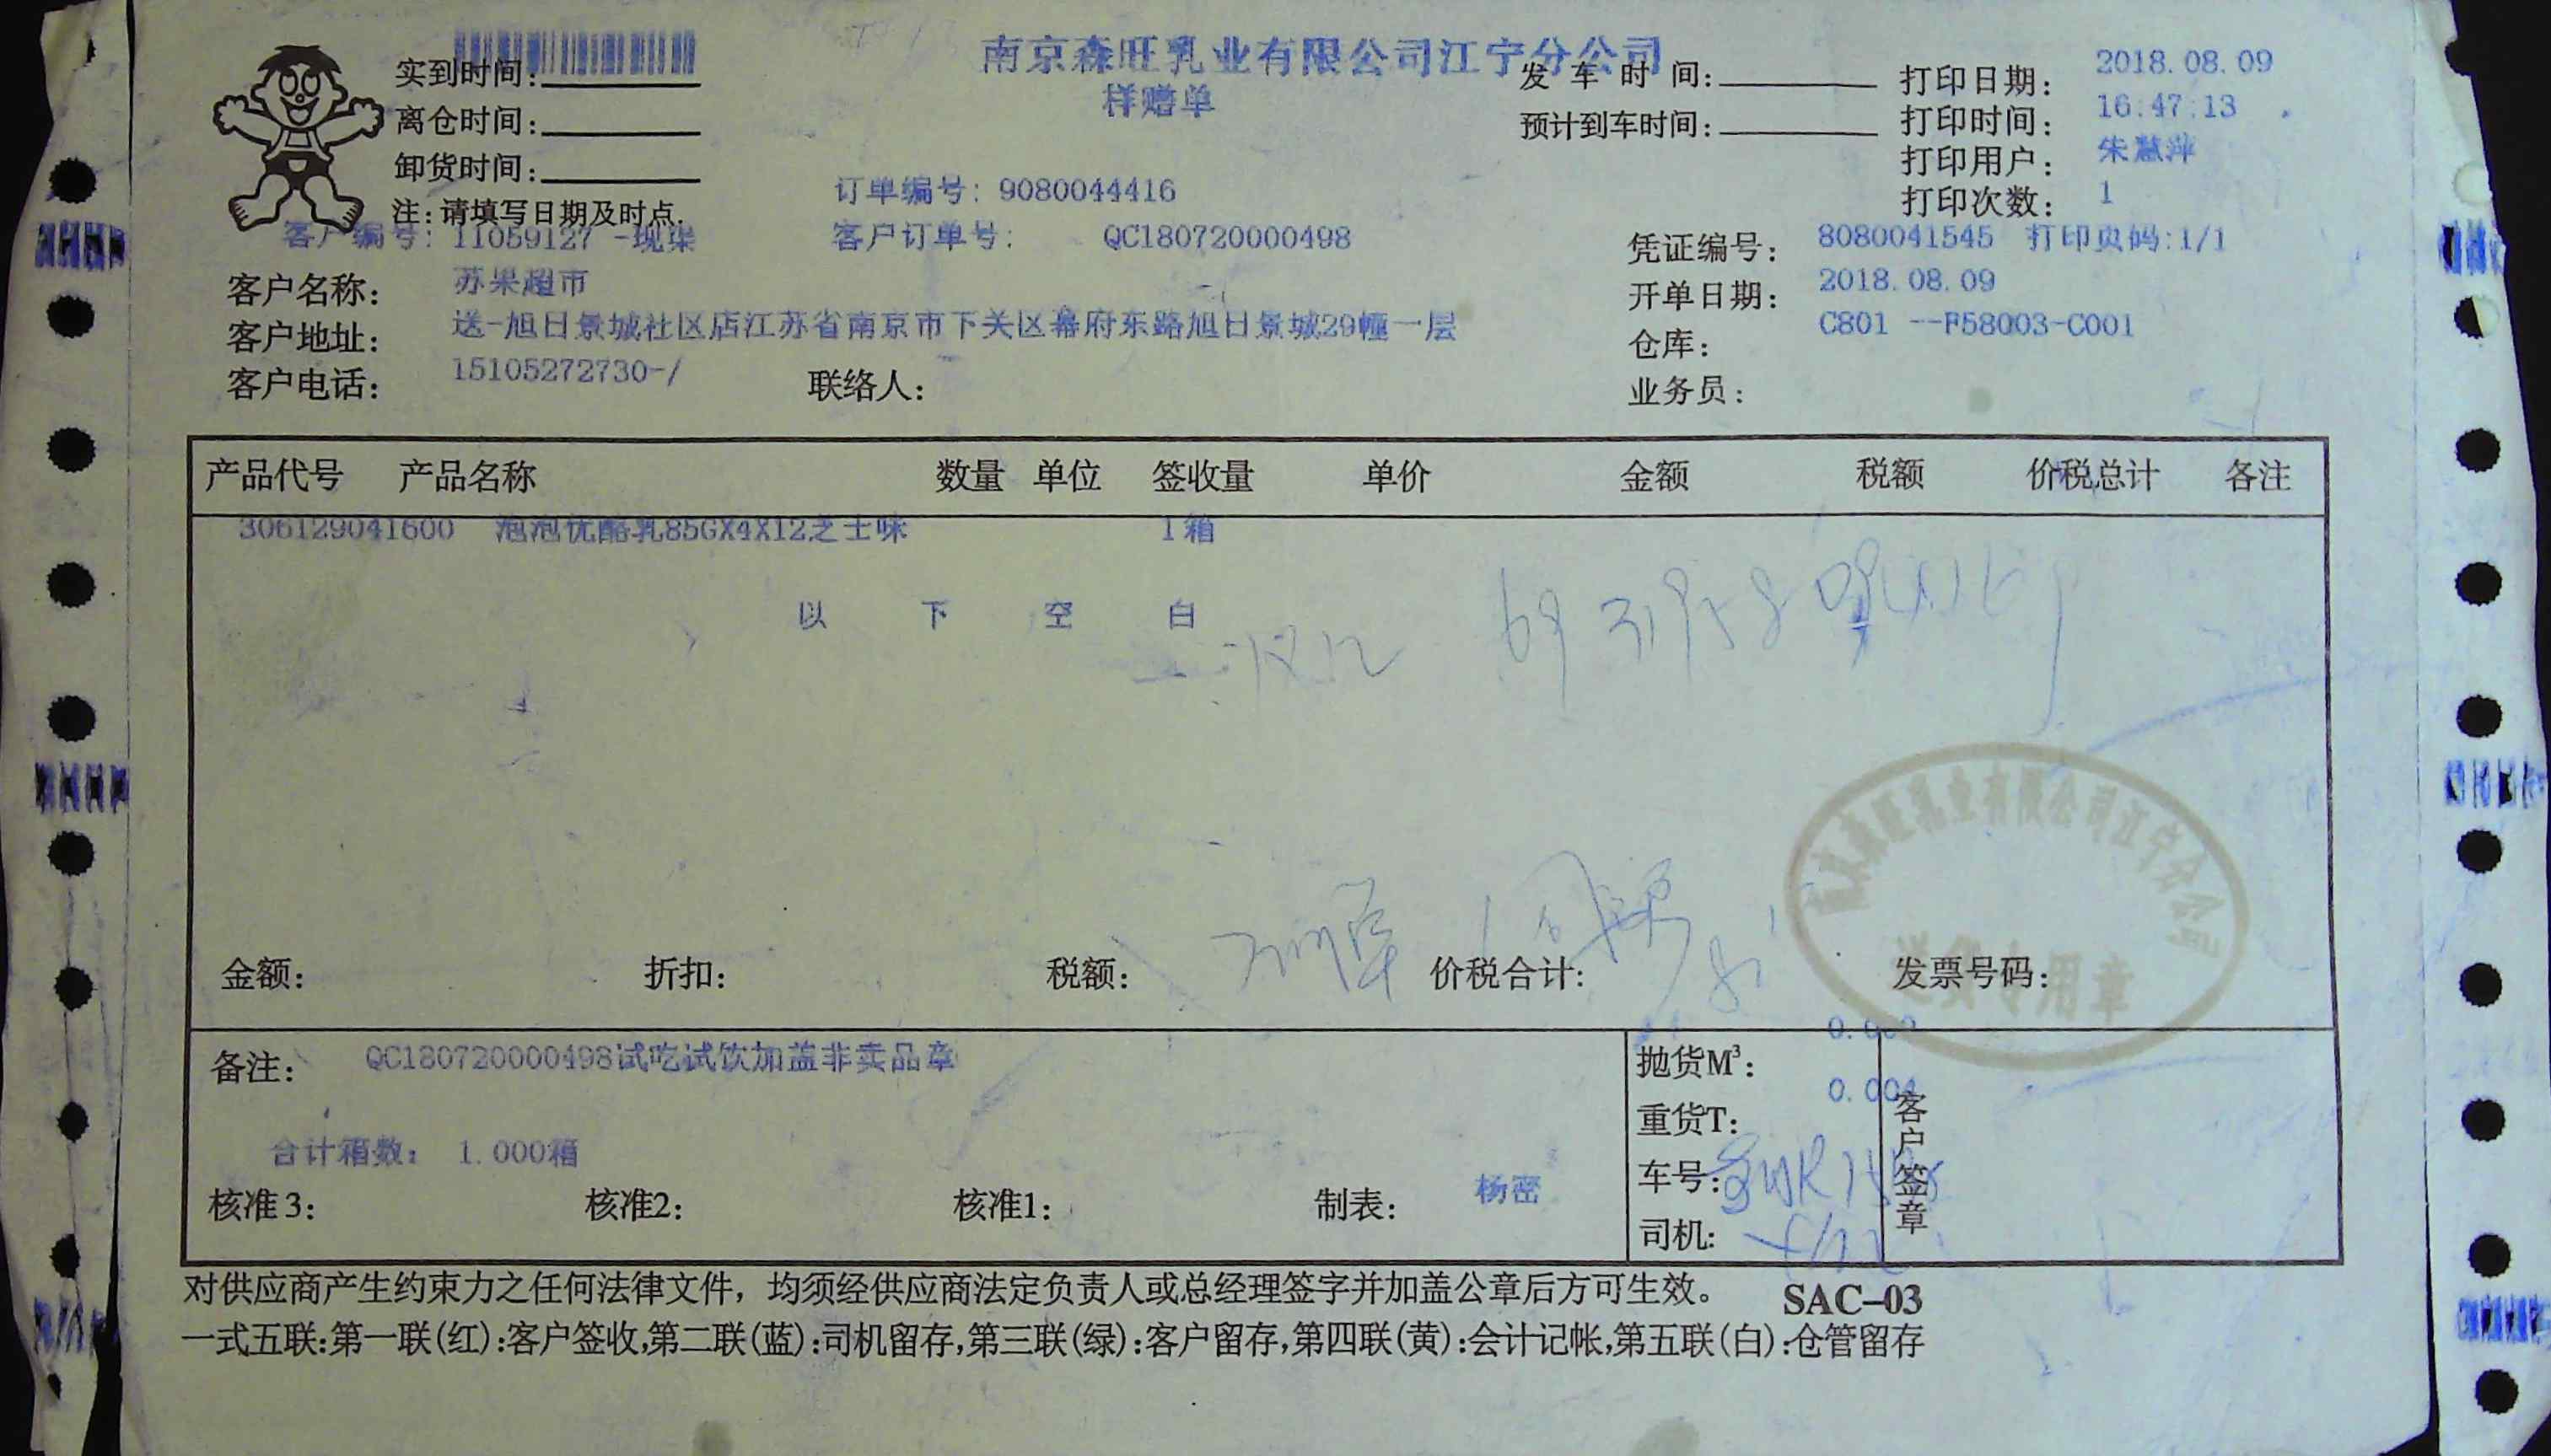 南京森旺乳业有限公司江宁分公司
样赠单
实到时间:
离仓时间:
卸货时间:
注:请填写日期及时点.
发车时间:
预计到车时间:
打印日期: 2018.08.09
打印时间: 16:47:13
打印用户: 朱慧萍
打印次数: 1
订单编号: 9080044416
客户编号: 11059127 -现渠 客户订单号: QC180720000498
凭证编号: 8080041545 打印页码:1/1
客户名称: 苏果超市
开单日期: 2018.08.09
客户地址: 送-旭日景城社区店江苏省南京市下关区幕府东路旭日景城29幢一层
仓库: C801 --F58003-C001
客户电话: 15105272730-/ 联络人:
业务员:
产品代号 产品名称 数量 单位 签收量 单价 金额 税额 价税总计 各注
306129041600 泡泡优酪乳85GX4X12芝士味 1箱
以下空白
南京森旺乳业有限公司江宁分公司
送货专用章
金额: 折扣: 税额: 价税合计: 发票号码:
备注: QC180720000498试吃试饮加盖非卖品章
合计箱数: 1.000箱
核准3: 核准2: 核准1: 制表: 杨密
抛货M³:
重货T: 0.004
车号:
司机:
客户签章
对供应商产生约束力之任何法律文件，均须经供应商法定负责人或总经理签字并加盖公章后方可生效。 SAC-03
一式五联:第一联(红):客户签收,第二联(蓝):司机留存,第三联(绿):客户留存,第四联(黄):会计记帐,第五联(白):仓管留存